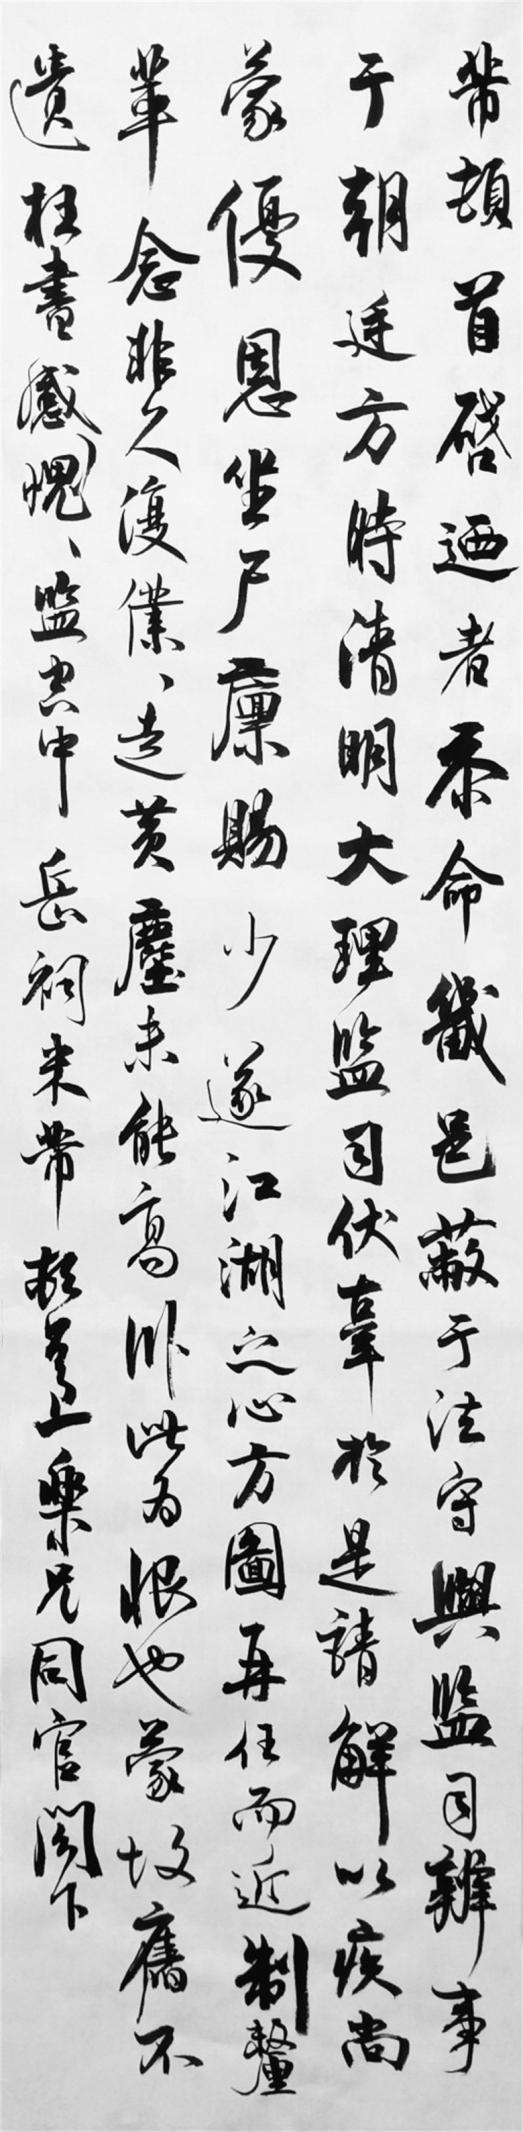 芾頓首啓迺者忝命畿邑蔽于法守與監司辨事
于朝廷方時清明大理監司伏辜於是請解以疾尚
蒙優恩坐尸廩賜少遂江湖之心方圖再任而近制釐
革念非久復僕、走黃塵未能高卧此為恨也蒙故舊不
遺枉書感愧、監中岳祠米芾頓首上樂兄同官閣下